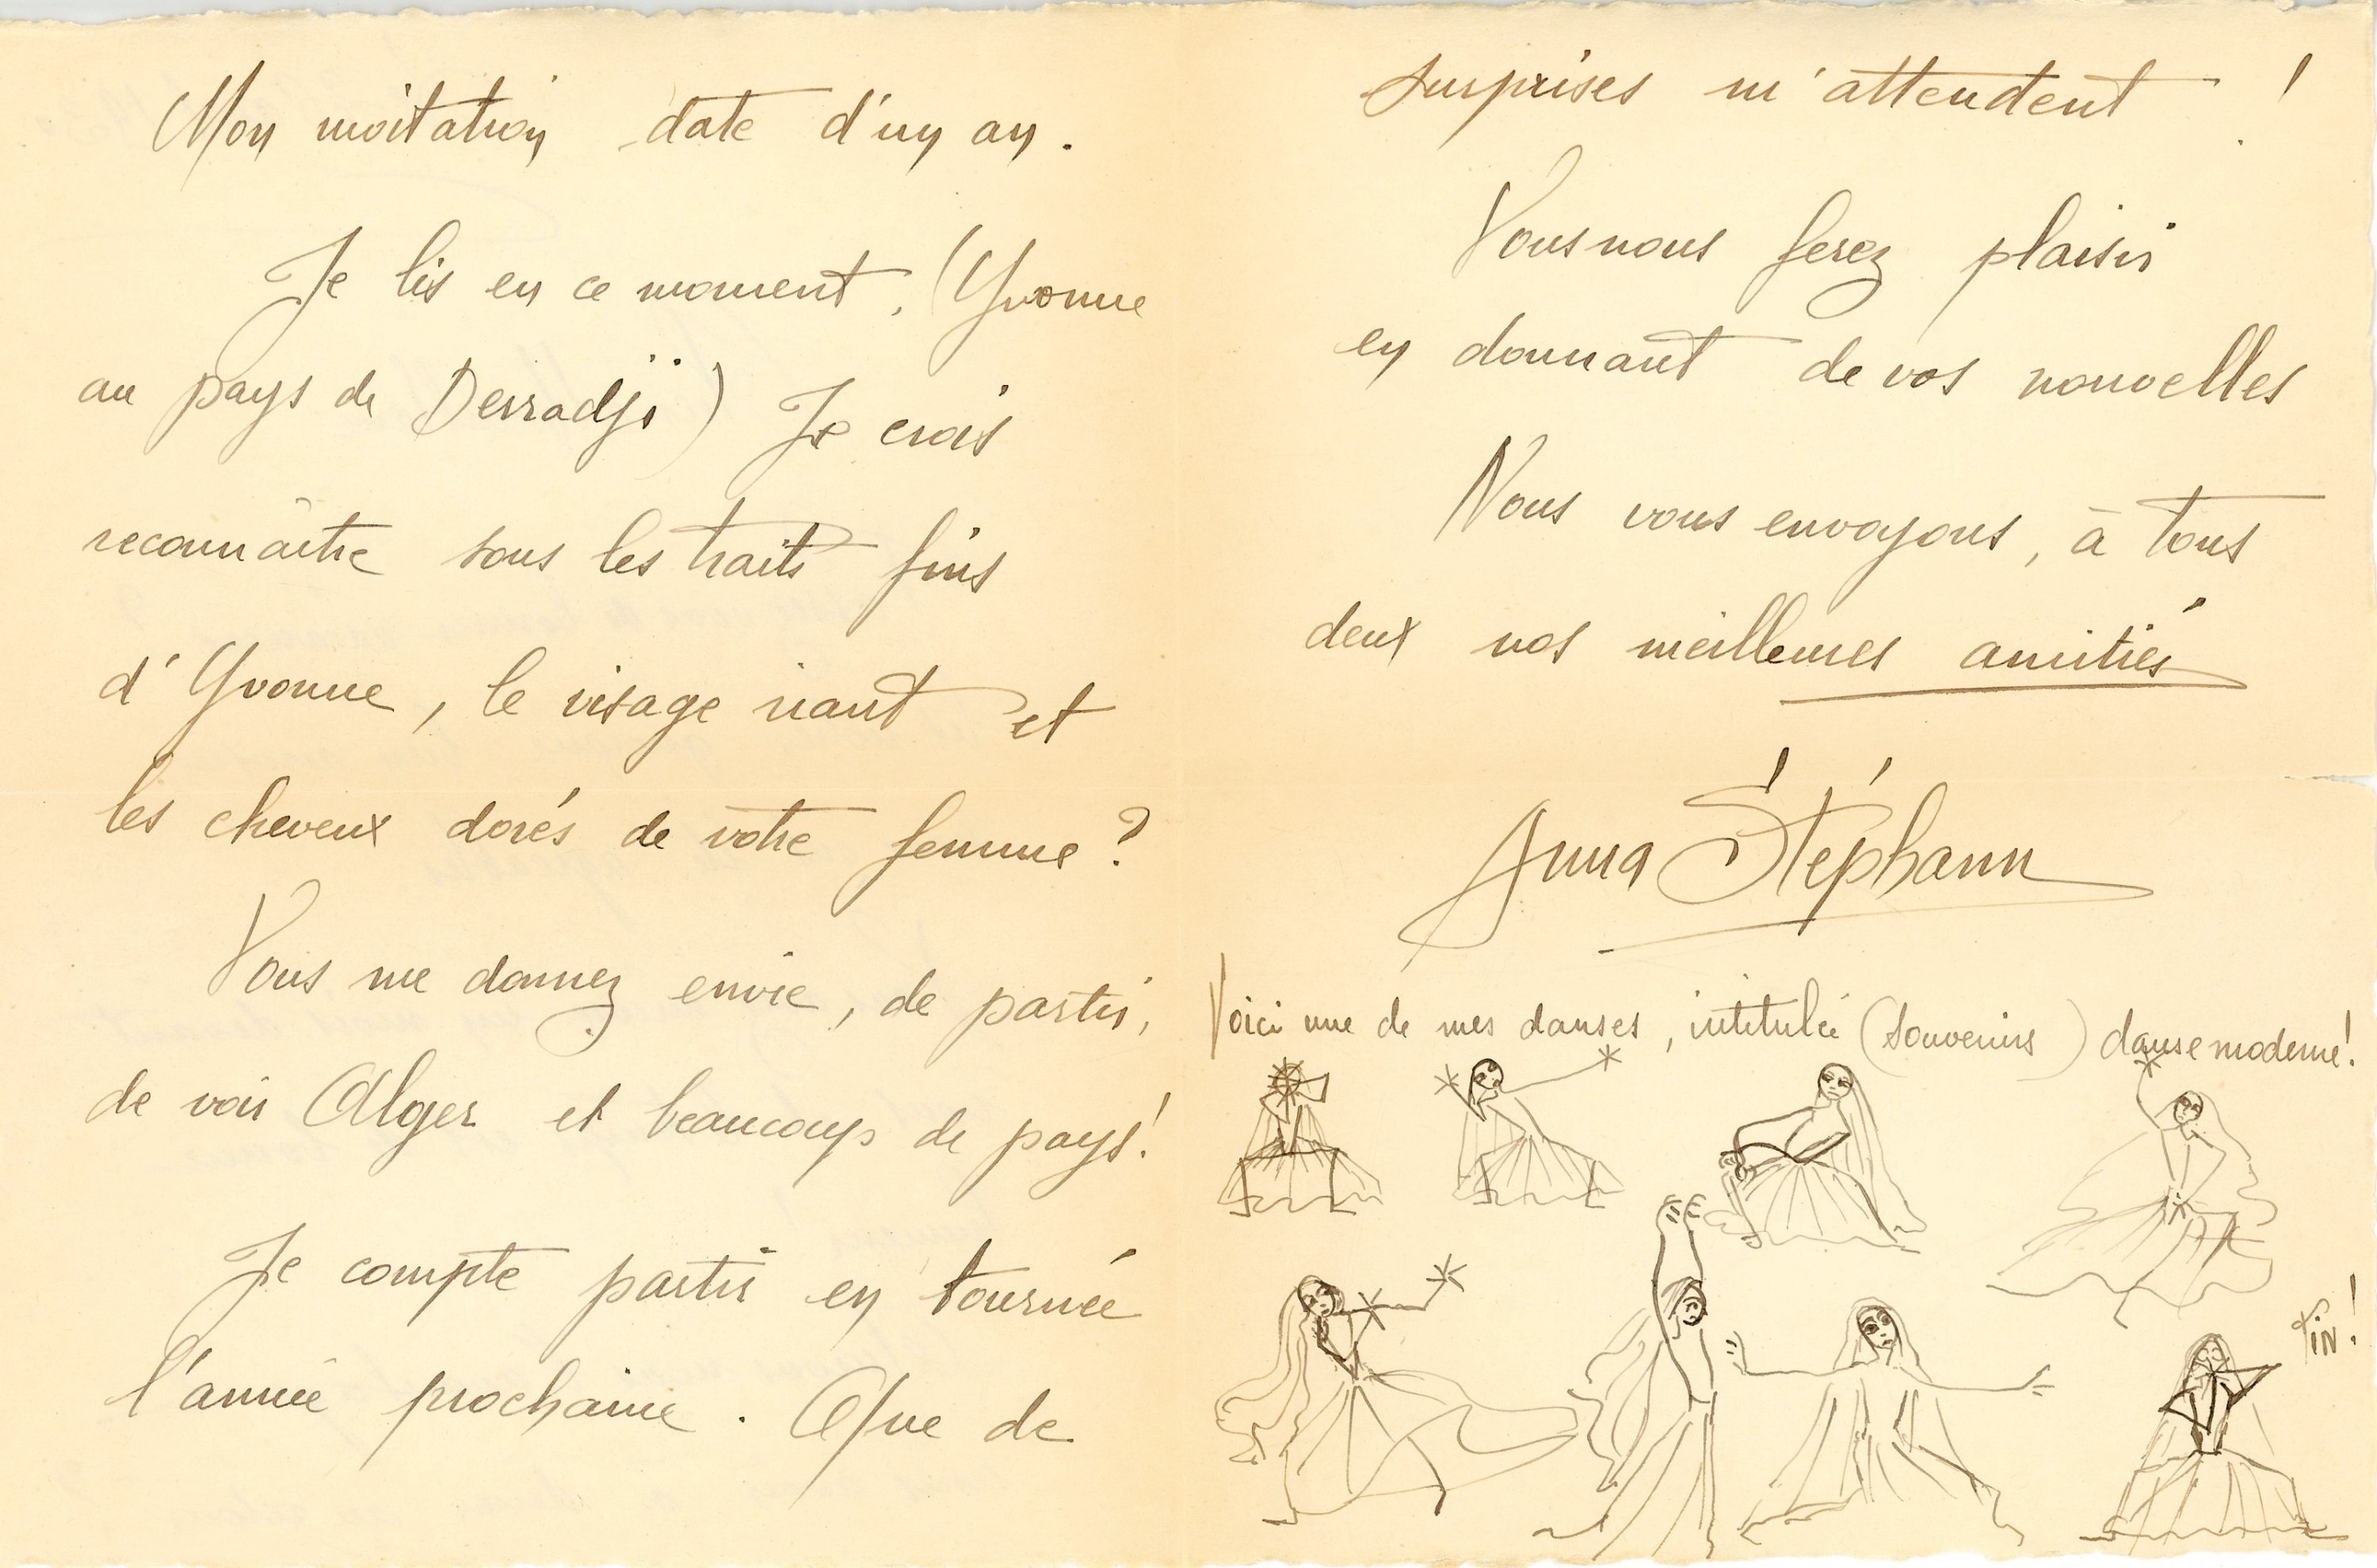 Mon invitation date d'un an.
Je lis en ce moment, (Yvonne
au pays de Derradji) Je crois
reconnaître sous les traits fins
d'Yvonne, le visage riant et
les cheveux dorés de votre femme ?
Vous me donnez envie, de partir,
de voir Alger et beaucoup de pays !
Je compte partir en tournée
l'année prochaine. Que de
surprises m'attendent !
Vous nous ferez plaisir
en donnant de vos nouvelles
Nous vous envoyons, à tous
deux nos meilleures amitiés
Anna Stéphann
Voici une de mes danses, intitulée (Souvenirs) danse moderne !
Fin !